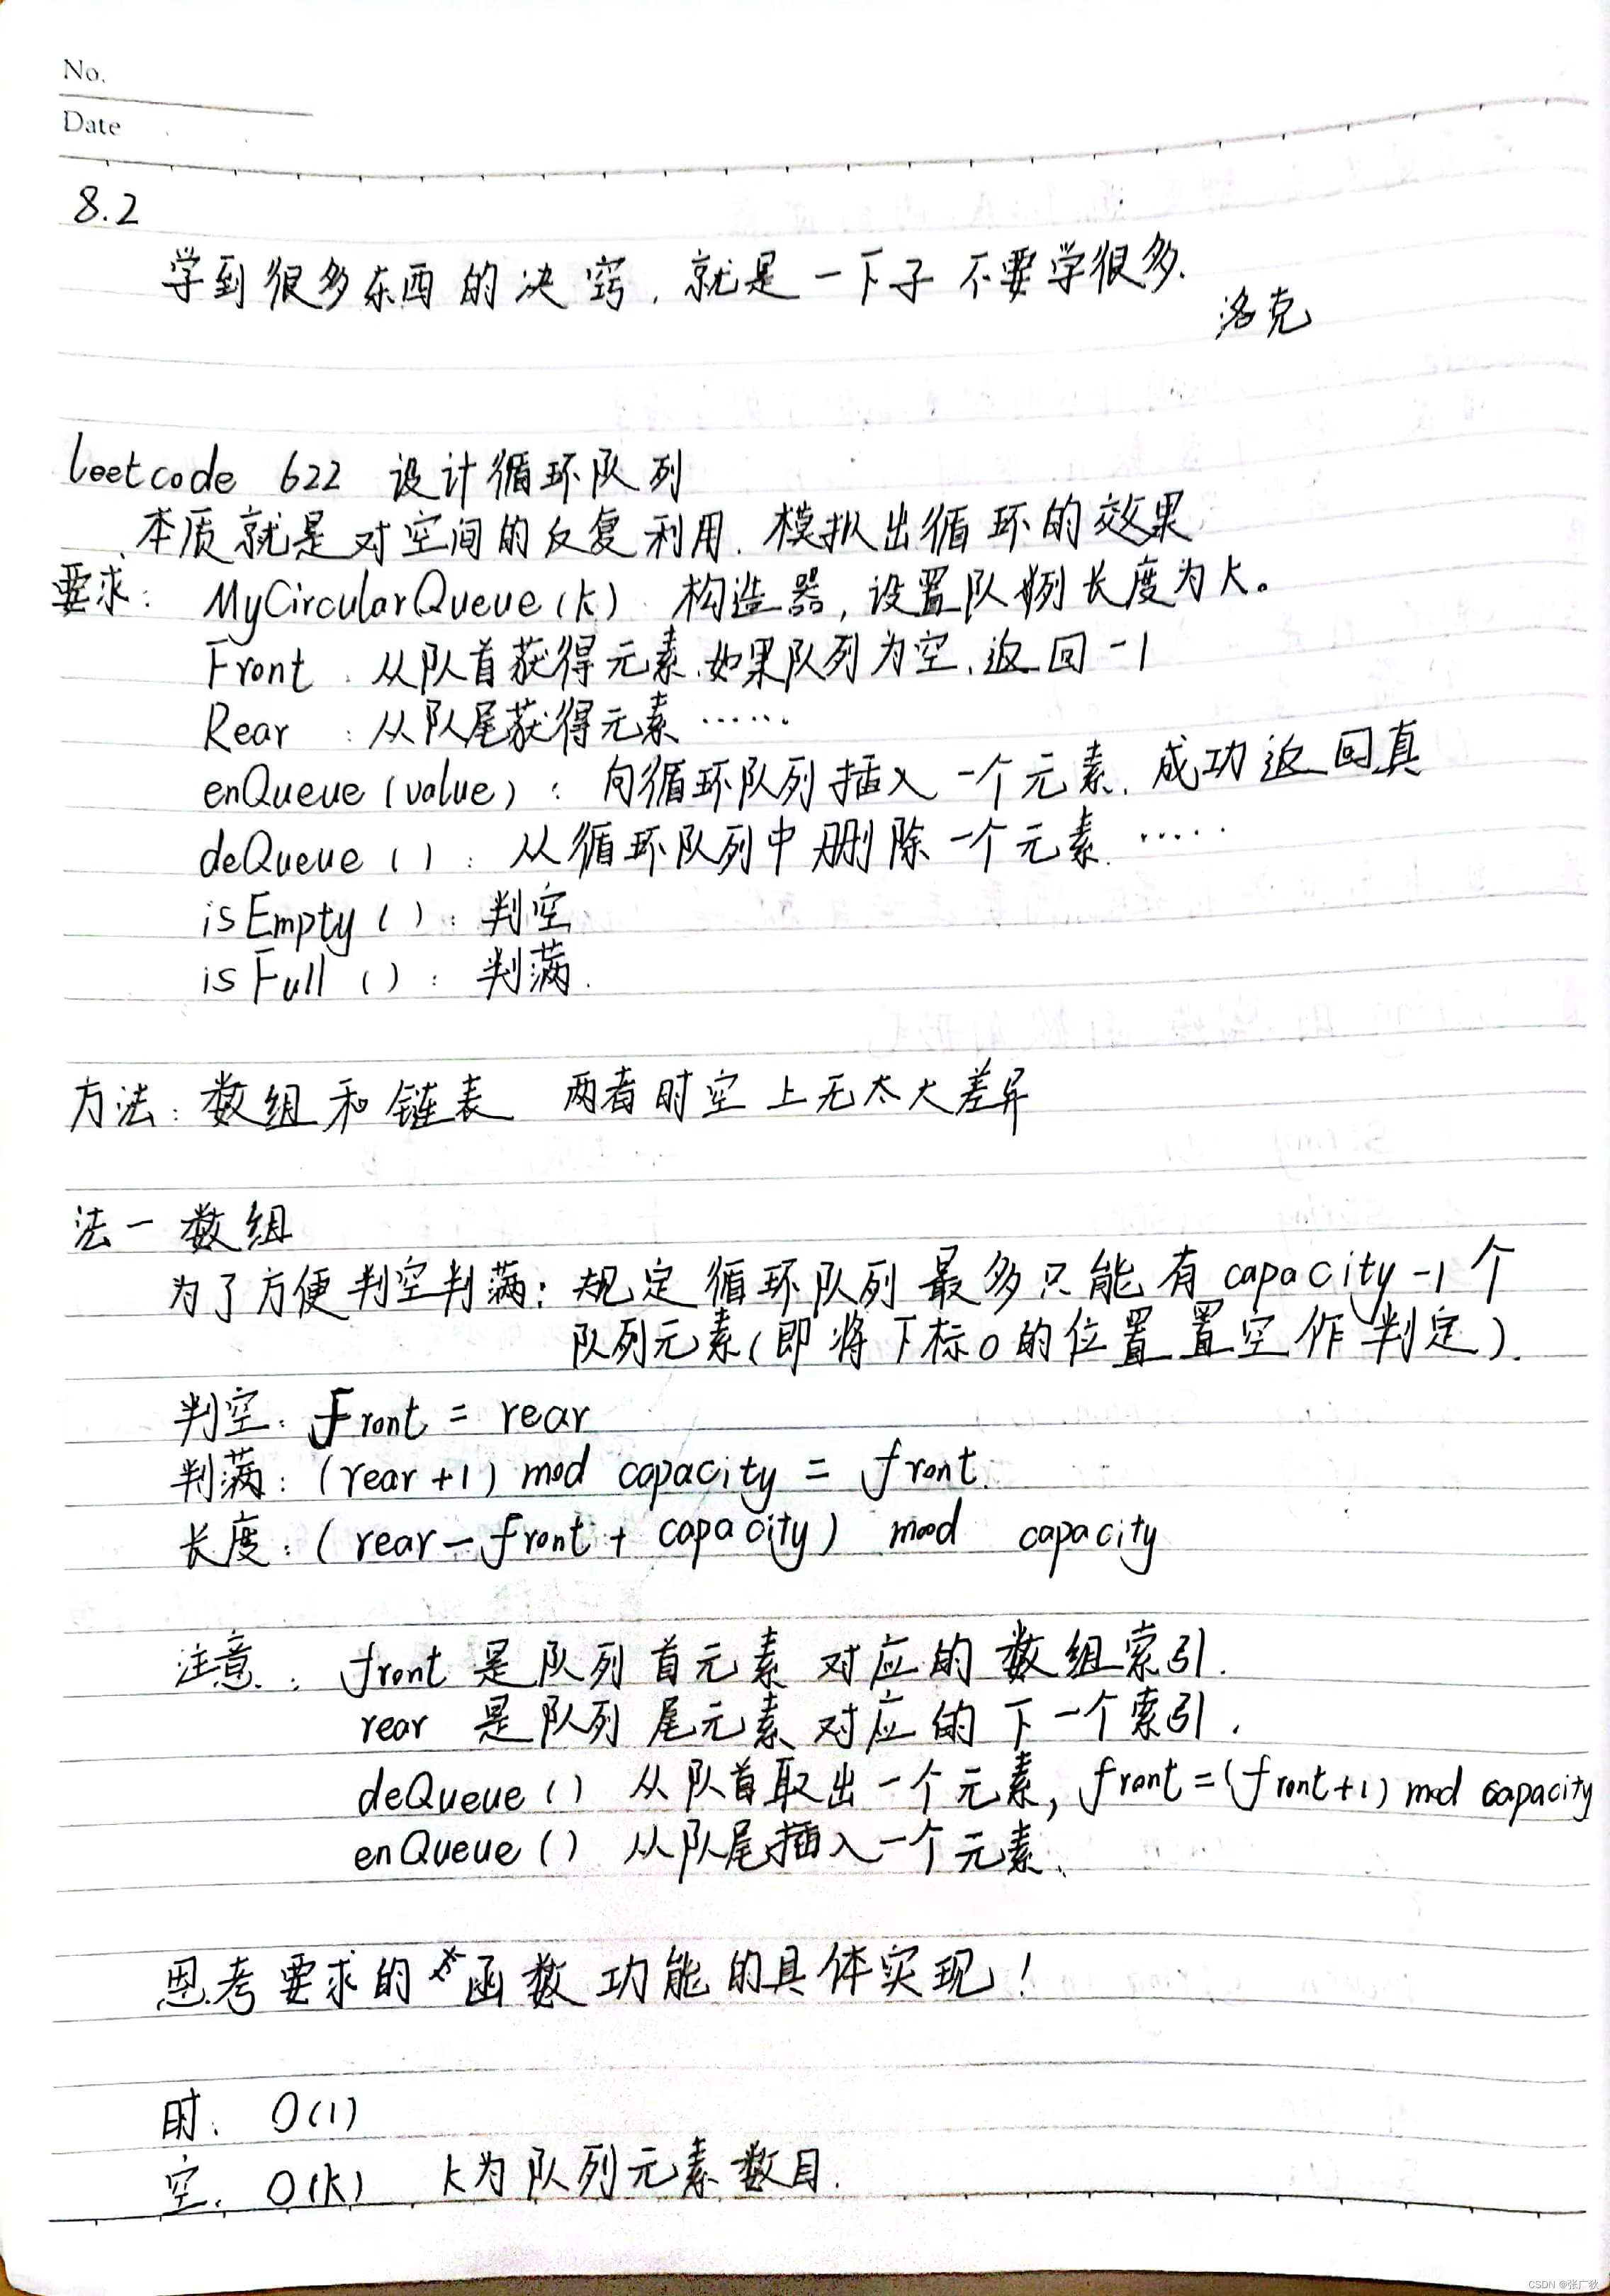 No.
Date
8.2
学到很多东西的决窍，就是一下子不要学很多.
洛克
leetcode 622 设计循环队列
本质就是对空间的反复利用. 模拟出循环的效果
要求: MyCircularQueue(k): 构造器, 设置队列长度为k。
Front: 从队首获得元素.如果队列为空,返回-1
Rear : 从队尾获得元素 ……
enQueue(value): 向循环队列插入一个元素. 成功返回真
deQueue(): 从循环队列中删除一个元素. ……
isEmpty(): 判空
isFull(): 判满.
方法: 数组和链表 两者时空上无太大差异
法一 数组
为了方便判空判满: 规定循环队列最多只能有capacity-1个
队列元素(即将下标0的位置置空作判定).
判空: front = rear
判满: (rear+1) mod capacity = front.
长度: (rear-front+capacity) mod capacity
注意: front 是队列首元素对应的数组索引.
rear 是队列尾元素对应的下一个索引.
deQueue() 从队首取出一个元素, front=(front+1) mod capacity
enQueue() 从队尾插入一个元素.
思考要求的函数功能的具体实现!
时: O(1)
空: O(k) k为队列元素数目.
CSDN @张广狄